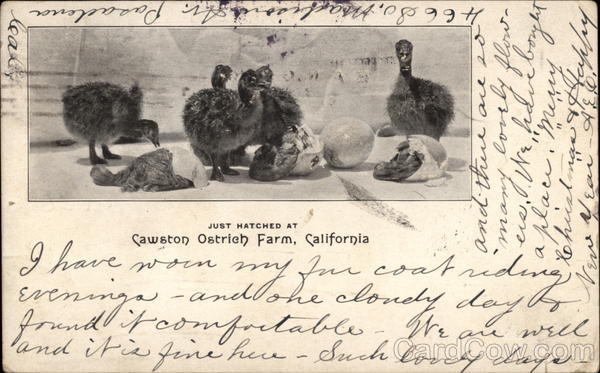 466 So. Madison Av. Pasadena
Cal.
JUST HATCHED AT
Cawston Ostrich Farm, California
I have worn my fur coat riding
evenings - and one cloudy day &
found it comfortable - We are well
and it is fine here - Such lovely days -
and there are so
many lovely flow-
ers. We have bought
a place. Merry
Christmas & Happy
New Year
CardCow.com